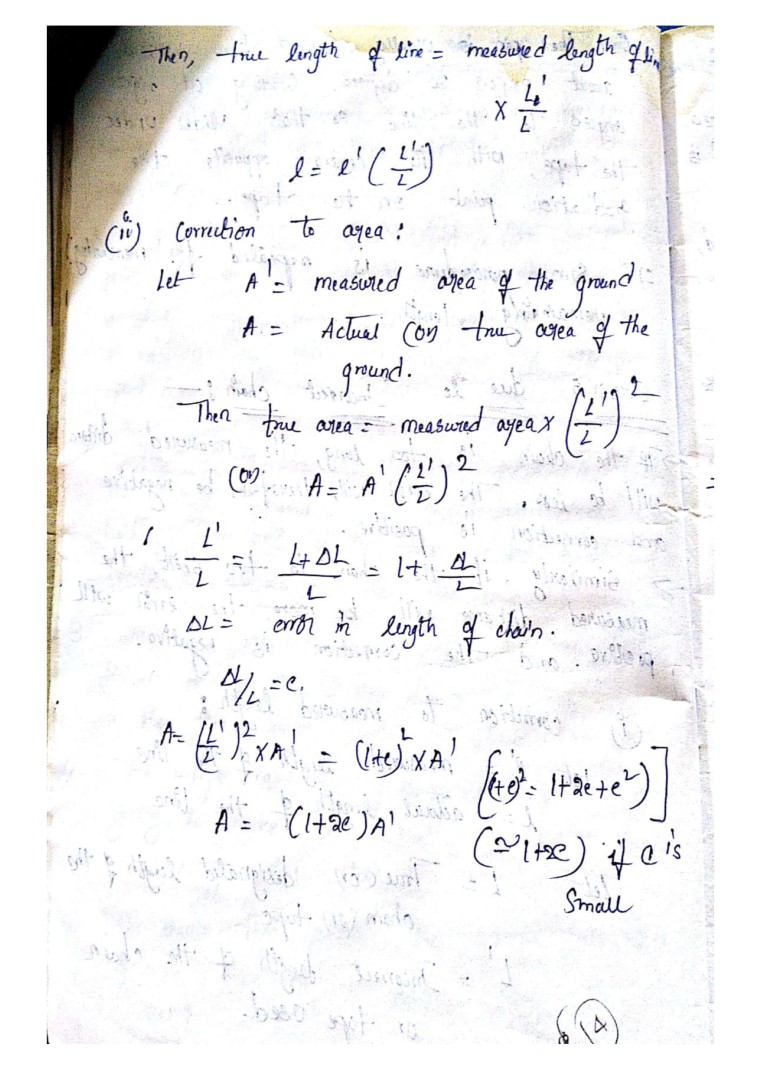 Then, true length of line = measured length of line
× L'/L
l = l' (L'/L)
(ii) Correction to area :
Let A' = measured area of the ground
A = Actual (or) true area of the
ground.
Then true area = measured area × (L'/L)²
(or) A = A' (L'/L)²
L'/L = (L+ΔL)/L = 1 + ΔL/L
ΔL = error in length of chain.
ΔL/L = e.
A = (L'/L)² × A' = (1+e)² × A' [(1+e)² = 1+2e+e²)]
A = (1+2e) A' (≃ 1+2e) if e is
Small
14